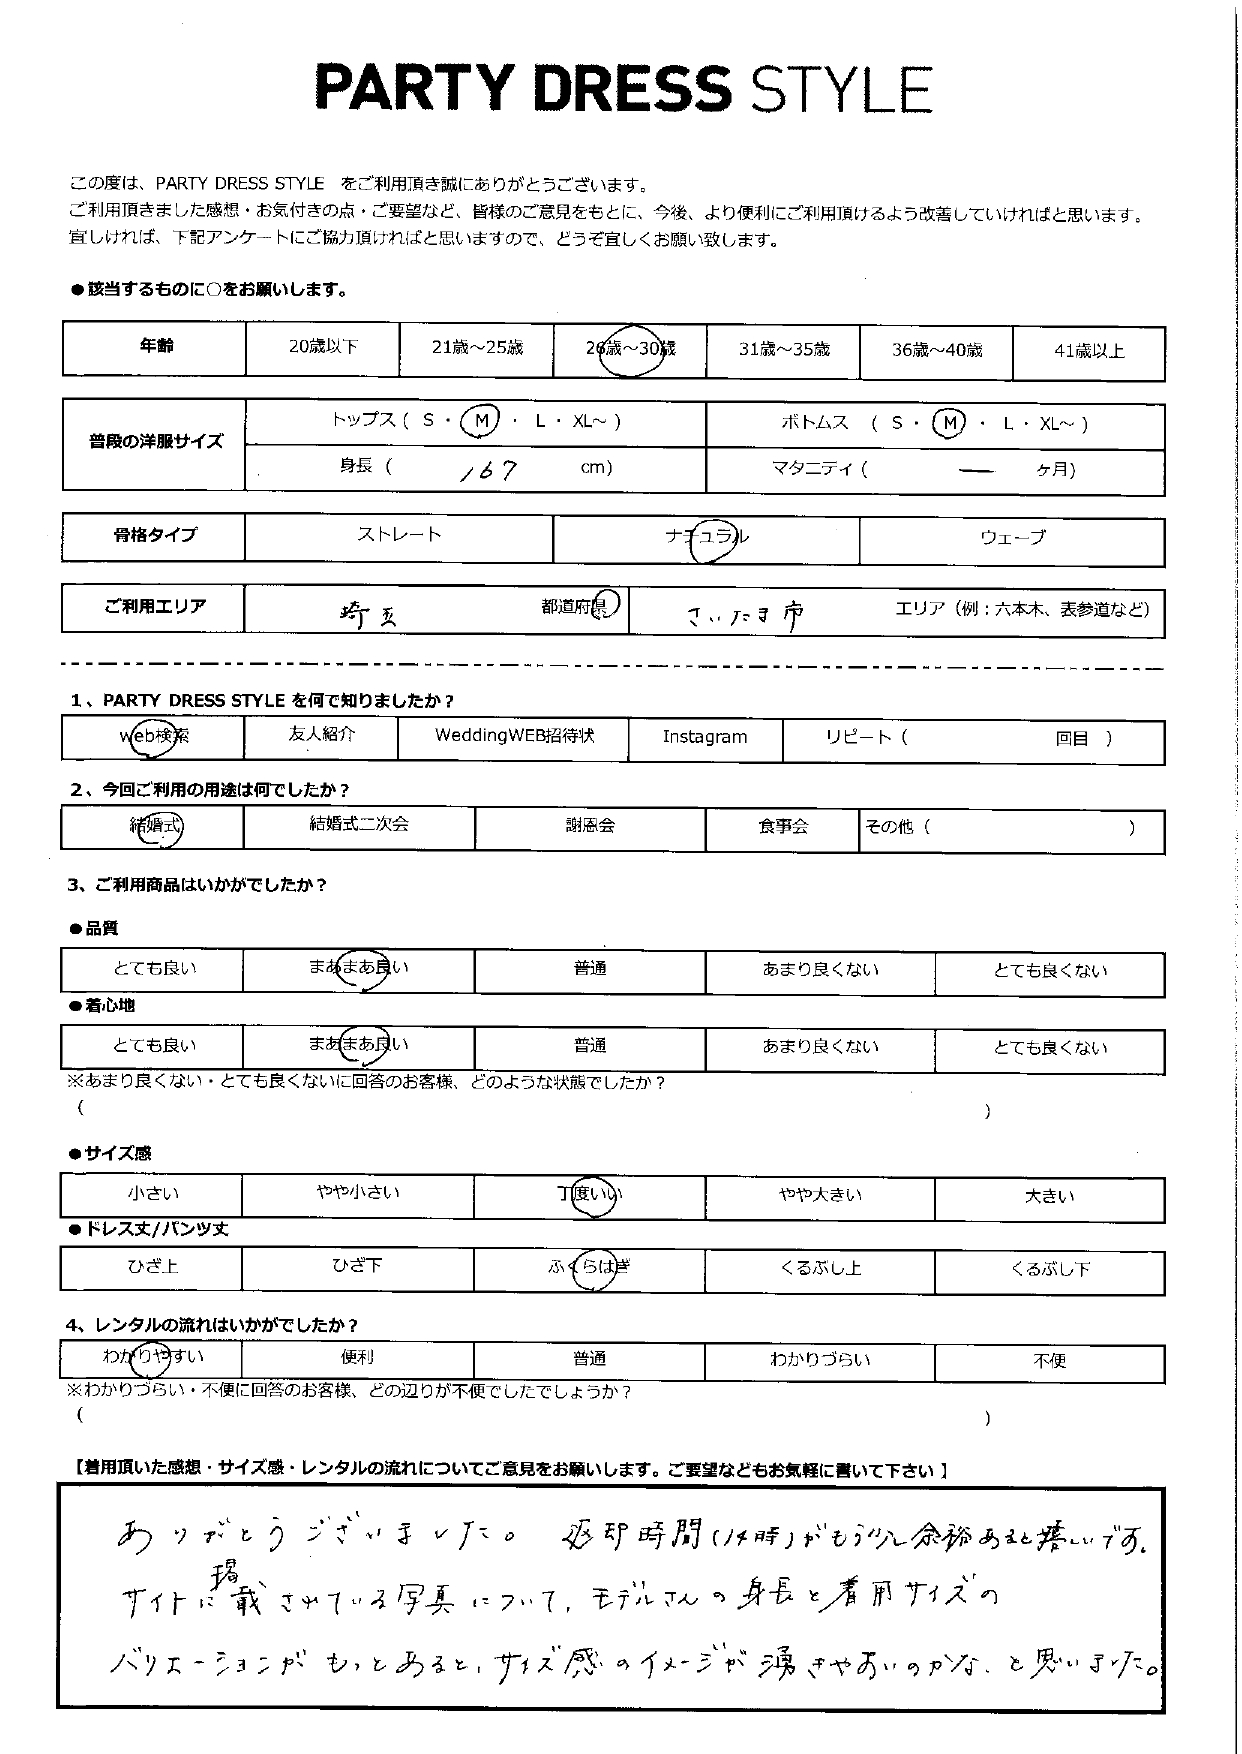 PARTY DRESS STYLE
この度は、PARTY DRESS STYLE をご利用頂き誠にありがとうございます。
ご利用頂きました感想・お気付きの点・ご要望など、皆様のご意見をもとに、今後、より便利にご利用頂けるよう改善していければと思います。
宜しければ、下記アンケートにご協力頂ければと思いますので、どうぞ宜しくお願い致します。
●該当するものに○をお願いします。
年齢 20歳以下 21歳～25歳 26歳～30歳 31歳～35歳 36歳～40歳 41歳以上
普段の洋服サイズ
トップス ( S ・ M ・ L ・ XL～ ) ボトムス ( S ・ M ・ L ・ XL～ )
身長 ( 167 cm) マタニティ ( ― ヶ月)
骨格タイプ ストレート ナチュラル ウェーブ
ご利用エリア 埼玉 都道府県 さいたま市 エリア（例：六本木、表参道など）
1、PARTY DRESS STYLE を何で知りましたか？
web検索 友人紹介 WeddingWEB招待状 Instagram リピート（ 回目 ）
2、今回ご利用の用途は何でしたか？
結婚式 結婚式二次会 謝恩会 食事会 その他（ ）
3、ご利用商品はいかがでしたか？
●品質
とても良い まあまあ良い 普通 あまり良くない とても良くない
●着心地
とても良い まあまあ良い 普通 あまり良くない とても良くない
※あまり良くない・とても良くないに回答のお客様、どのような状態でしたか？
（ ）
●サイズ感
小さい やや小さい 丁度いい やや大きい 大きい
●ドレス丈/パンツ丈
ひざ上 ひざ下 ふくらはぎ くるぶし上 くるぶし下
4、レンタルの流れはいかがでしたか？
わかりやすい 便利 普通 わかりづらい 不便
※わかりづらい・不便に回答のお客様、どの辺りが不便でしたでしょうか？
（ ）
【着用頂いた感想・サイズ感・レンタルの流れについてご意見をお願いします。ご要望などもお気軽に書いて下さい 】
ありがとうございました。返却時間(14時)がもう少し余裕あると嬉しいです。
サイトに掲載されている写真について、モデルさんの身長と着用サイズの
バリエーションがもっとあると、サイズ感のイメージが湧きやすいのかな、と思いました。